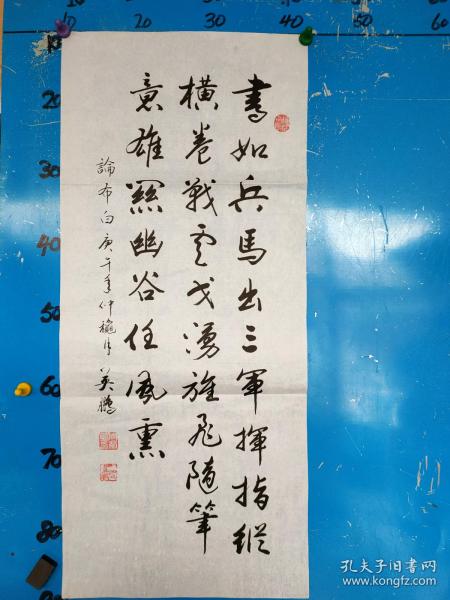 10 20 30 40 50 60
10
20
30
40
50
60
70
80
書如兵馬出三軍揮指縱
橫卷戰雲戈湧旌飛隨筆
意雄關幽谷任風熏
論布白庚午年仲穐月英鵬
孔夫子旧书网
www.kongfz.com